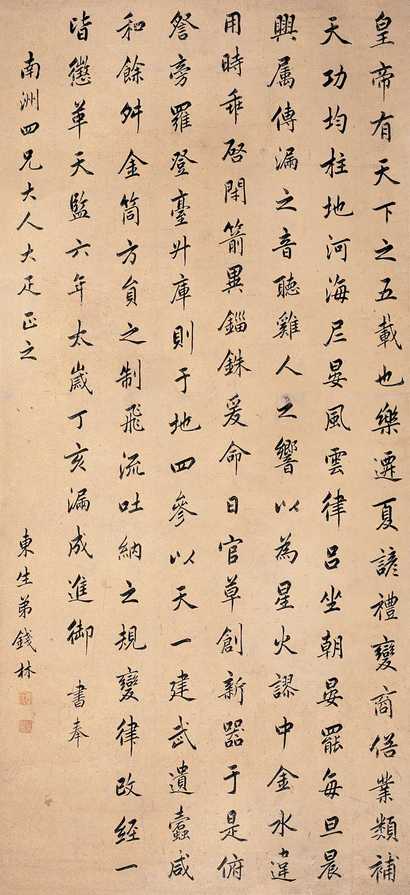 皇帝有天下之五載也樂遷夏諺禮變商俗業類補
天功均柱地河海尼晏風雲律呂坐朝晏罷每旦晨
興屬傳漏之音聽雞人之響以為星火謬中金水違
用時乖啓閉箭異錙銖爰命日官草創新器于是俯
詧旁羅登臺升庫則于地四參以天一建武遺蠹咸
和餘舛金筒方員之制飛流吐納之規變律改經一
皆懲革天監六年太歲丁亥漏成進御 書奉
南洲四兄大人大疋正之
東生弟錢林